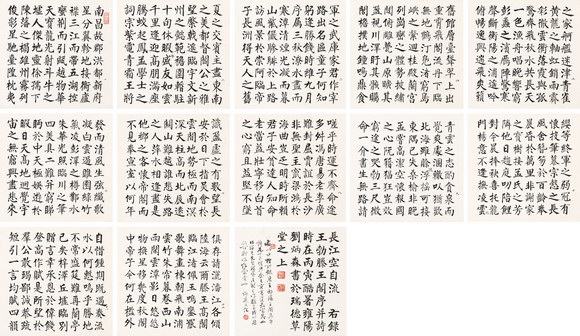 南昌故郡洪都新府
星分翼軫地接衡廬
襟三江而帶五湖控
蠻荊而引甌越物華
天寶龍光射斗牛之
墟人傑地靈徐孺下
陳蕃之榻雄州霧列
俊彩星馳臺隍枕夷
夏之交賓主盡東南
之美都督閻公之雅
望棨戟遙臨宇文新
州之懿範襜帷暫駐
十旬休暇勝友如雲
千里逢迎高朋滿座
騰蛟起鳳孟學士之
詞宗紫電青霜王將
軍之武庫家君作宰
路出名區童子何知
躬逢勝餞時維九月
序屬三秋潦水盡而
寒潭清煙光凝而暮
山紫儼驂騑於上路
訪風景於崇阿臨帝
子之長洲得
舊館層臺聳翠上出
重霄飛閣流丹下臨
無地鶴汀鳧渚窮島
之縈迴桂殿蘭宮
列岡巒之體勢披繡
闥俯雕甍山原曠其
盈視川澤盱其駭矚
閭閻撲地鐘鳴鼎食
之家舸艦迷津青雀
黃龍之舳虹銷雨霽
彩徹雲衢落霞與孤
鶩齊飛秋水共長天
一色漁舟唱晚響窮
彭蠡之濱雁陣驚寒
聲斷衡陽之浦遙吟
俯暢逸興遄飛爽籟
發而清風生纖歌
凝白雲遏睢園綠竹
氣凌彭澤之樽鄴水
朱華光照臨川之筆
四美具二難并窮睇
眄於中天極娛遊於
暇日天高地迥覺宇
宙之無窮興盡悲來
識盈虛之有數望長
安於日下指吳會於
雲間地勢極而南溟
深天柱高而北辰遠
關山難越誰悲失路
之人萍水相逢盡是
他鄉之客懷帝閽而
不見奉宣室以何年
嗟乎時運不齊命途
多舛馮唐易老李廣
難封屈賈誼於長沙
非無聖主竄梁鴻於
海曲豈乏明時所賴
君子安貧達人知命
老當益壯寧移白首
之心窮且益堅不墜
青雲之志酌貪泉而
覺爽處涸轍以猶歡
北海雖賒扶搖可接
東隅已逝桑榆非晚
孟嘗高潔空懷報國
之心阮籍猖狂豈效
窮途之哭勃三尺微
命一介書生無路請
纓等終軍之弱冠有
懷投筆慕宗愨之長
風舍簪笏於百齡奉
晨昏於萬里非謝家
之寶樹接孟氏之芳
鄰他日趨庭叨陪鯉
對今晨捧袂喜托龍
門楊意不逢撫凌雲
而自惜鍾期既遇奏流
水以何慚嗚乎勝地
不常盛筵難再蘭亭
已矣梓澤丘墟臨別
贈言幸承恩於偉餞
登高作賦是所望於
群公敢竭鄙誠恭疏
短引一言均賦四韻
俱成請灑潘江各傾
陸海云爾滕王高閣
臨江渚佩玉鳴鸞罷
歌舞畫棟朝飛南浦
雲珠簾暮捲西山
雨閒雲潭影日悠悠
物換星移幾度秋閣
中帝子今何在檻外
長江空自流 右錄
王勃滕王閣序并詩
時在丙寅酷暑雍陽
劉炳森書於瑞德草
堂之上